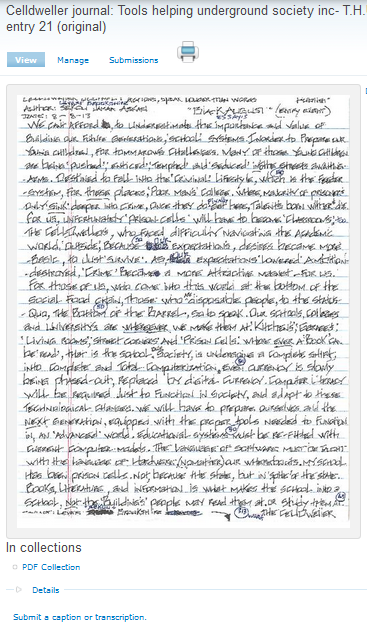 Celldweller journal: Tools helping underground society inc- T.H.
entry 21 (original)
View Manage Submissions
ACTIONS, SPEAK LOUDER THAN WORDS
"BLACK AUGUST" (ENTRY EIGHT)
ESSAYS
8-8-13
WE CAN'T AFFORD to UNDERESTIMATE the IMPORTANCE AND VALUE OF
BUILDING OUR FUTURE GENERATIONS, SCHOOL SYSTEMS. IN ORDER to PREPARE OUR
YOUNG CHILDREN, FOR TOMMOROWS CHALLENGES. MANY OF THOSE YOUNG CHILDREN
ARE being 'PUSHED', ENTICED, TEMPTED AND SEDUCED INTO the STREETS WAITING-
ARMS. DESTINED to FALL into the 'CRIMINAL' LIFESTYLE, WHICH IS the FEEDER
-SYSTEM, FOR these PLACES; POOR MANS' COLLEGE. WHERE, MAJORITY OF PRISONERS
ONLY SINK deeper into CRIME, ONCE they do get HERE,
FOR US, UNFORTUNATELY 'PRISON CELLS' WILL have to BECOME 'CLASSROOMS',
THE CELLDWELLERS, WHO FACED DIFFICULTY NAVIGATING the ACADEMIC
WORLD, OUTSIDE, BECAUSE OUR EXPECTATIONS, DESIRES BECAME MORE
-BASIC, to JUST 'SURVIVE'. AS, OUR EXPECTATIONS LOWERED, AMBITION
-DESTROYED, 'CRIME' BECAME A MORE ATTRACTIVE MAGNET - FOR US.
FOR THOSE OF US, WHO CAME into this WORLD at the bottom OF the
SOCIAL FOOD CHAIN, THOSE WHO disposable people, to the STATUS-
- QUO, THE BOTTOM OF THE BARREL, SO to SPEAK. OUR SCHOOLS, COLLEGES
AND UNIVERSITYS ARE WHEREVER WE MAKE THEM AT. KITCHENS,
'LIVING ROOMS', STREET CORNERS AND PRISON CELLS. WHERE EVER A 'BOOK' CAN
be READ', that IS the SCHOOL. SOCIETY, IS UNDERGOING A COMPLETE SHIFT,
into COMPLETE AND TOTAL COMPUTERIZATION, EVEN CURRENCY IS SLOWLY
being PHASED-OUT, REPLACED BY DIGITAL CURRENCY. COMPUTER LITERACY
WILL be REQUIRED JUST to FUNCTION IN SOCIETY, AND ADAPT to THESE
TECHNOLOGICAL CHANGES. WE WILL have to PREPARE OURSELVES AND the
NEXT GENERATION, EQUIPPED WITH the PROPER tools NEEDED to FUNCTION
IN, AN 'ADVANCED' WORLD. EDUCATIONAL SYSTEMS MUST BE RE-FITTED WITH
CURRENT COMPUTER MODELS. THE LANGUAGE OF SOFTWARE MUST BE TAUGHT
WITH the LANGUAGE OF HARDWARE, (NO MATTER) OUR WHEREABOUTS. MY SCHOOL
HAS been PRISON CELLS. NOT, because the STATE, but IN SPITE OF the STATE.
BOOKS, LITERATURE, AND INFORMATION IS WHAT MAKES the SCHOOL INTO A
SCHOOL, NOT the 'BUILDINGS' PEOPLE MAY READ them AT. OR STUDY THEM AT.
THE CELLDWELLER
In collections
PDF Collection
Details
Submit a caption or transcription.